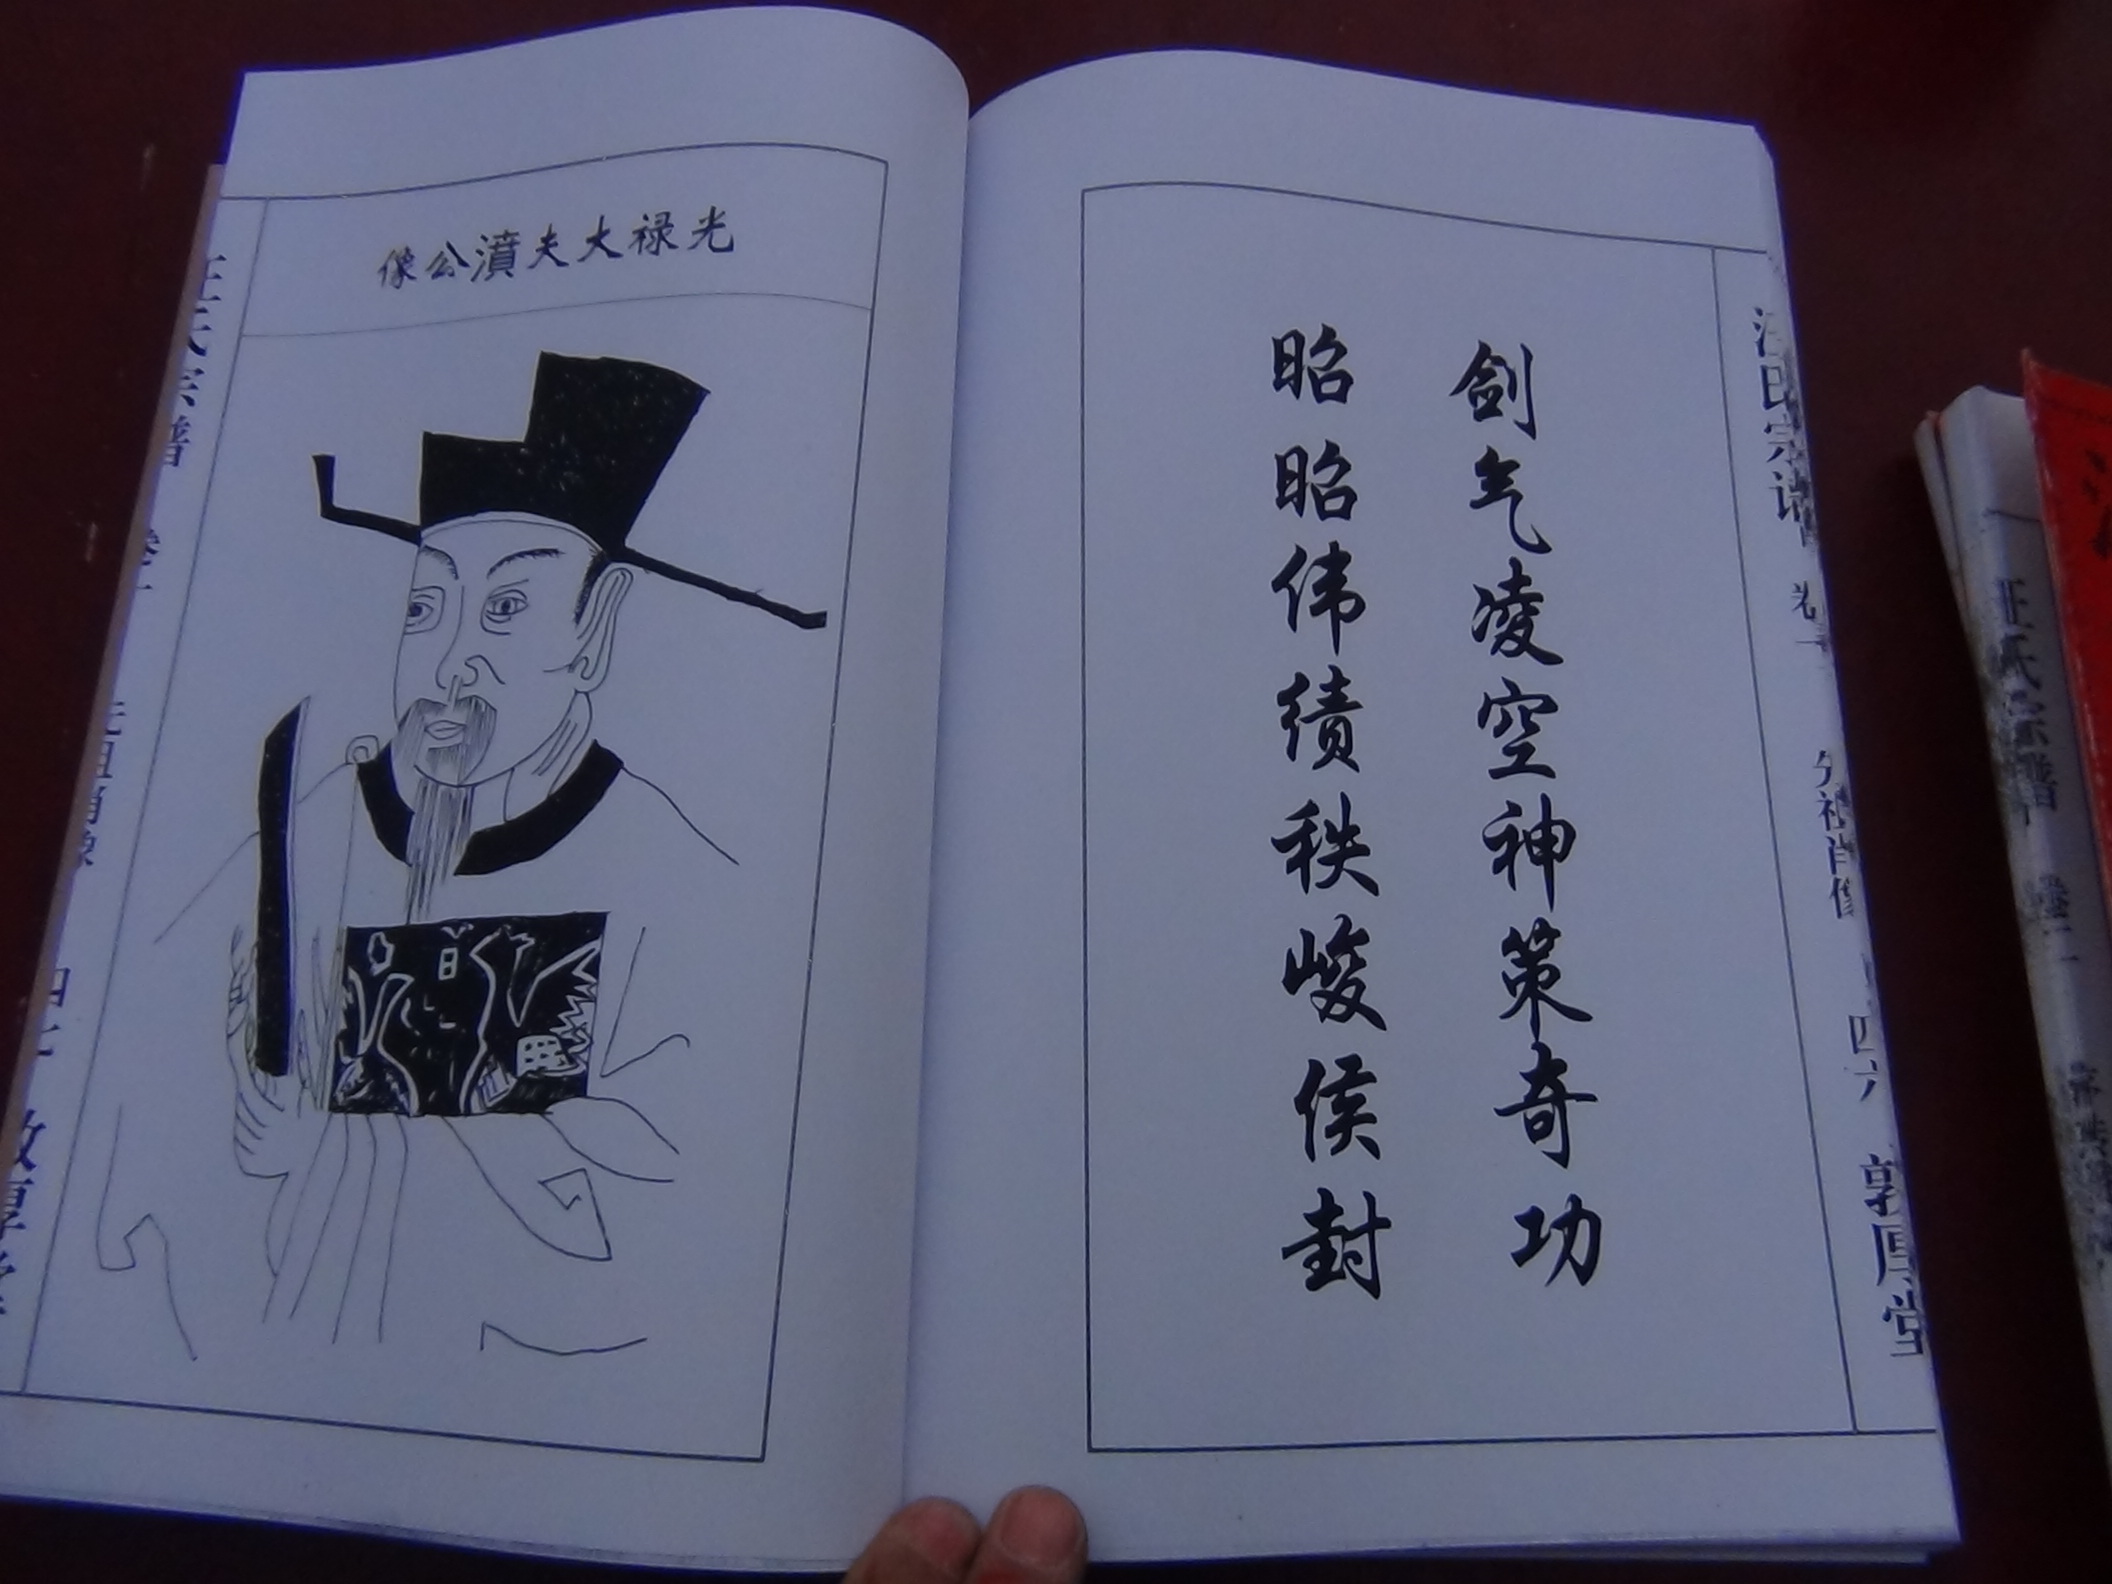 剑气凌空神策奇功
昭昭伟绩秩峻侯封
汪氏宗谱 卷一 先祖肖像 四六 敦厚堂
光禄大夫濆公像
汪氏宗譜 卷一 先祖肖像 四七 敦厚堂
汪氏宗譜